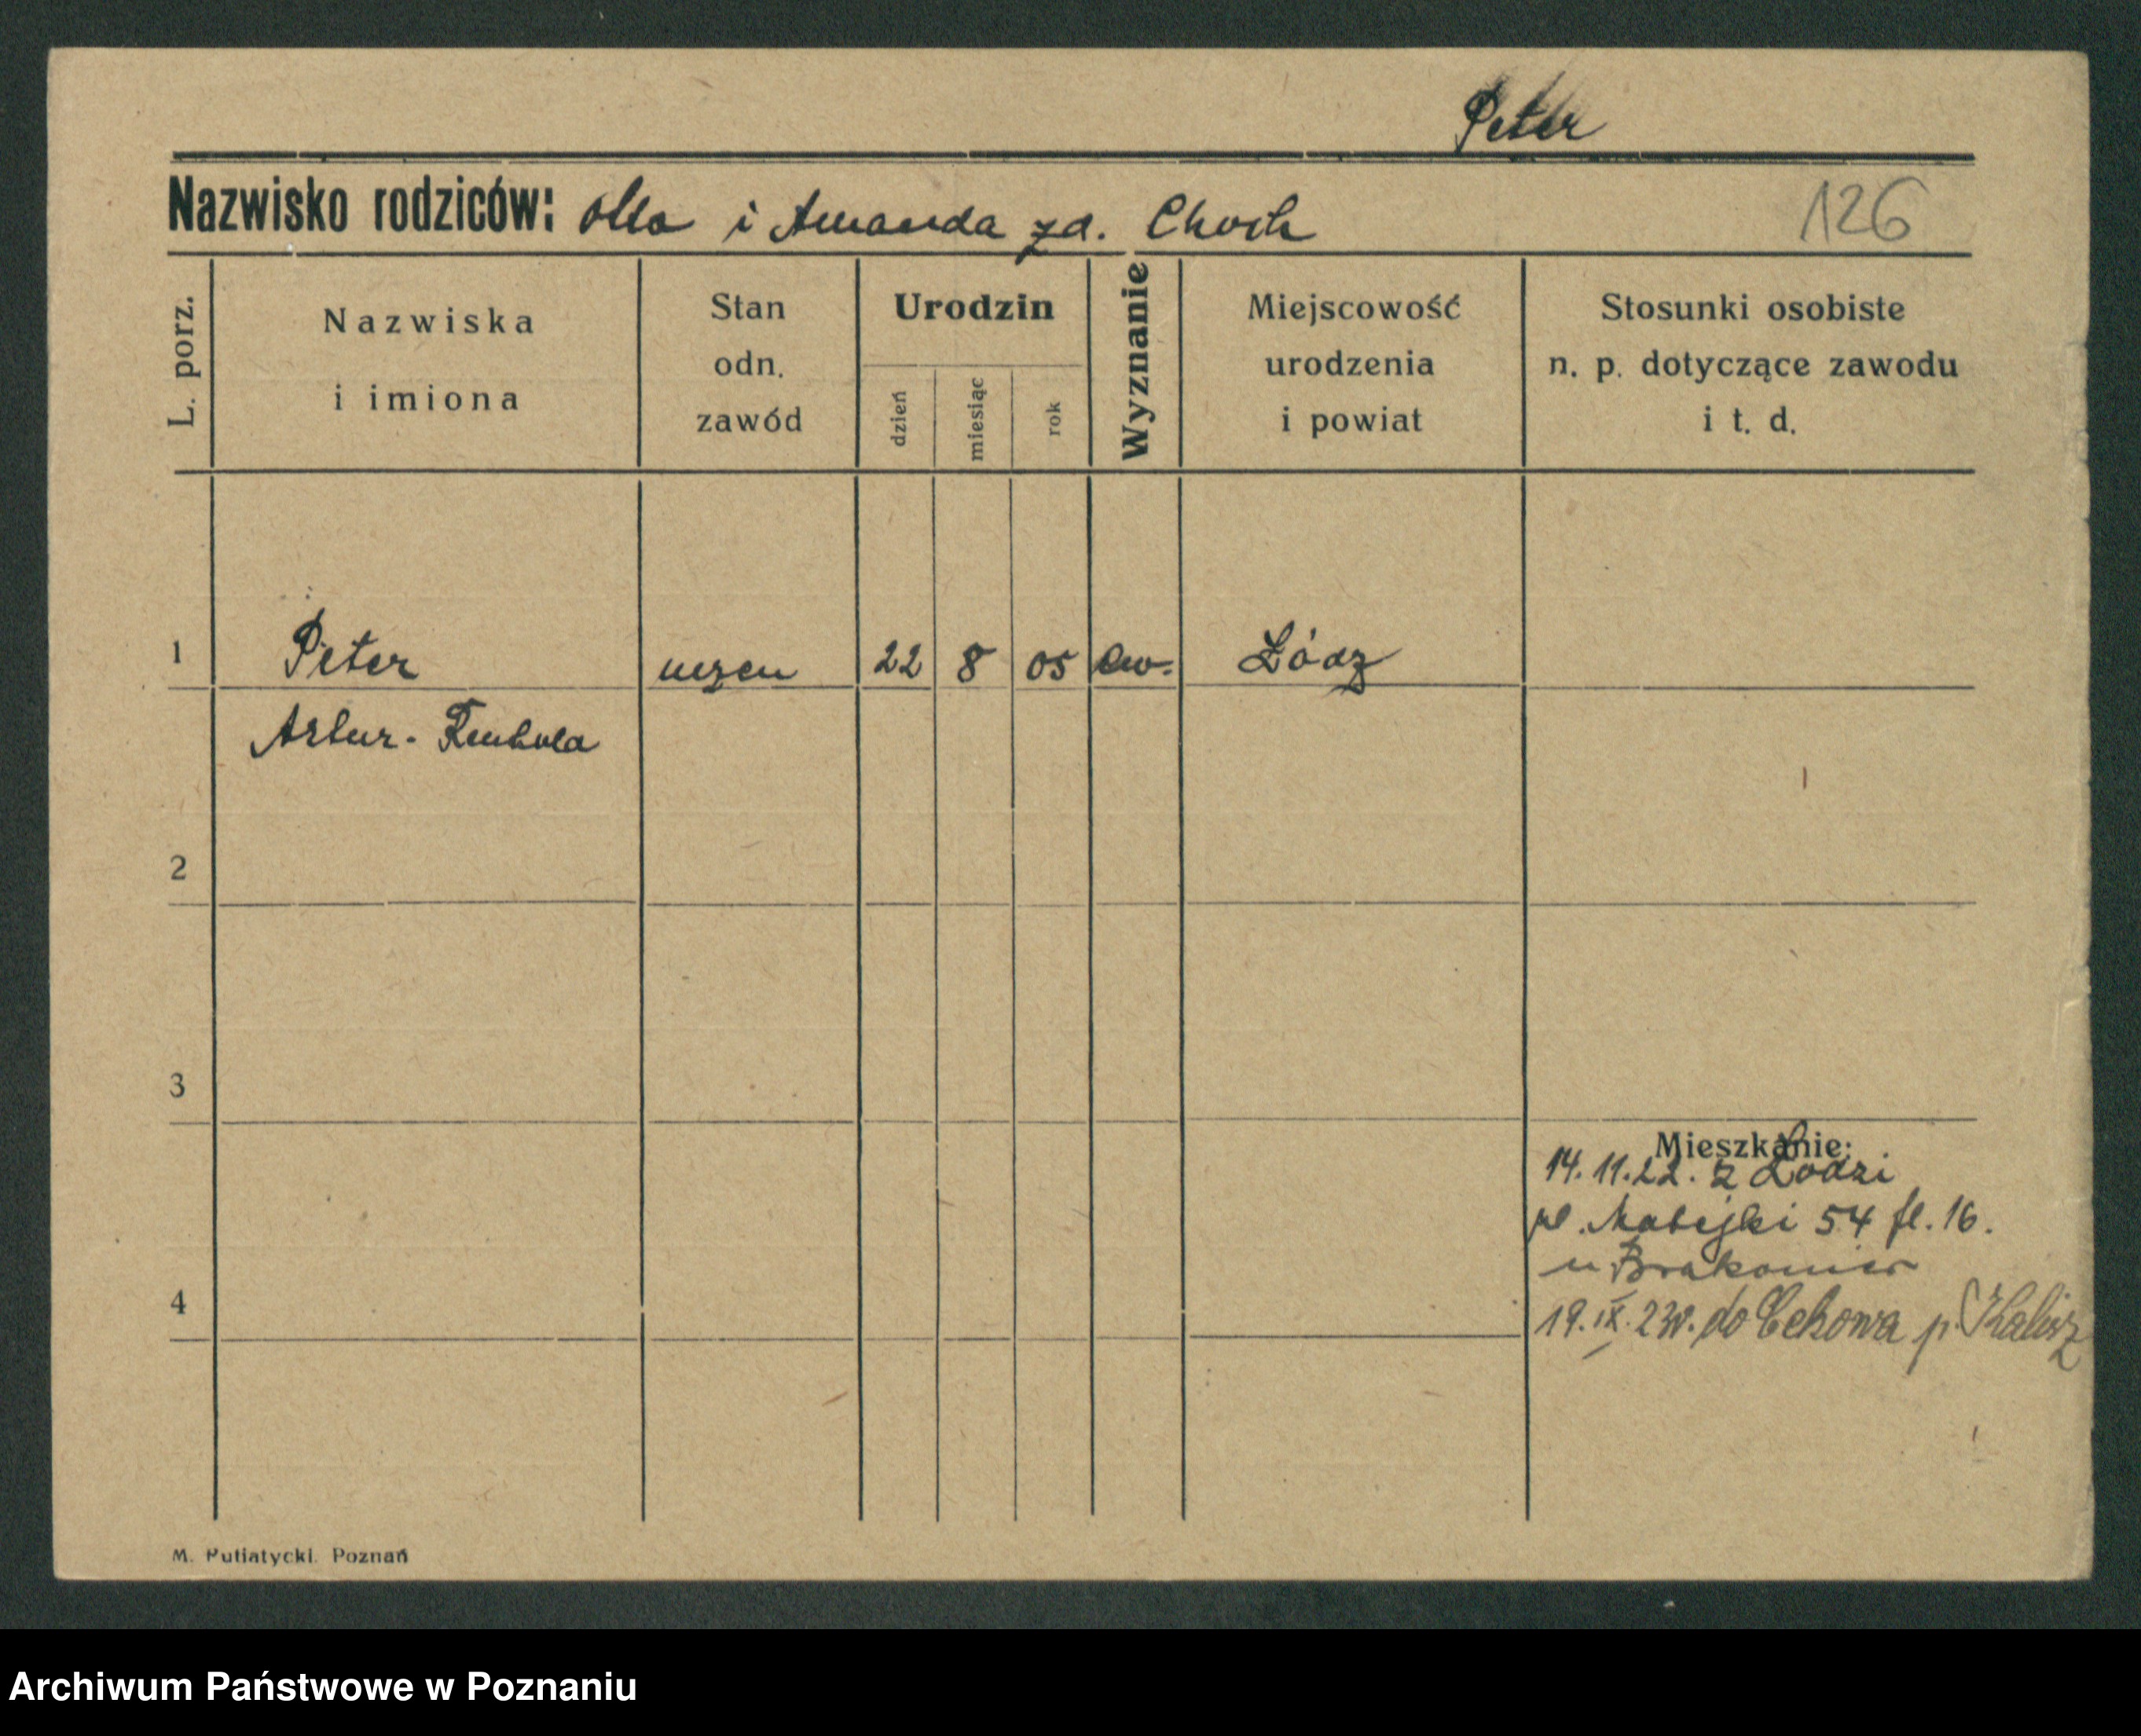 Peter
Nazwisko rodziców: Otto i Amanda zd. Choch
126
L. porz.
Nazwiska
i imiona
Stan
odn.
zawód
Urodzin
dzień
miesiąc
rok
Wyznanie
Miejscowość
urodzenia
i powiat
Stosunki osobiste
n. p. dotyczące zawodu
i t. d.
1 Peter uczeń 22 8 05 ew. Łódz
Artur-
2
3
Mieszkanie:
14.11.22. z Łodzi
ul. Matejki 54 fl. 16.
u
4
19.IX.23r. do Cekowa p. Kalisz
M. Putiatycki. Poznań
Archiwum Państwowe w Poznaniu